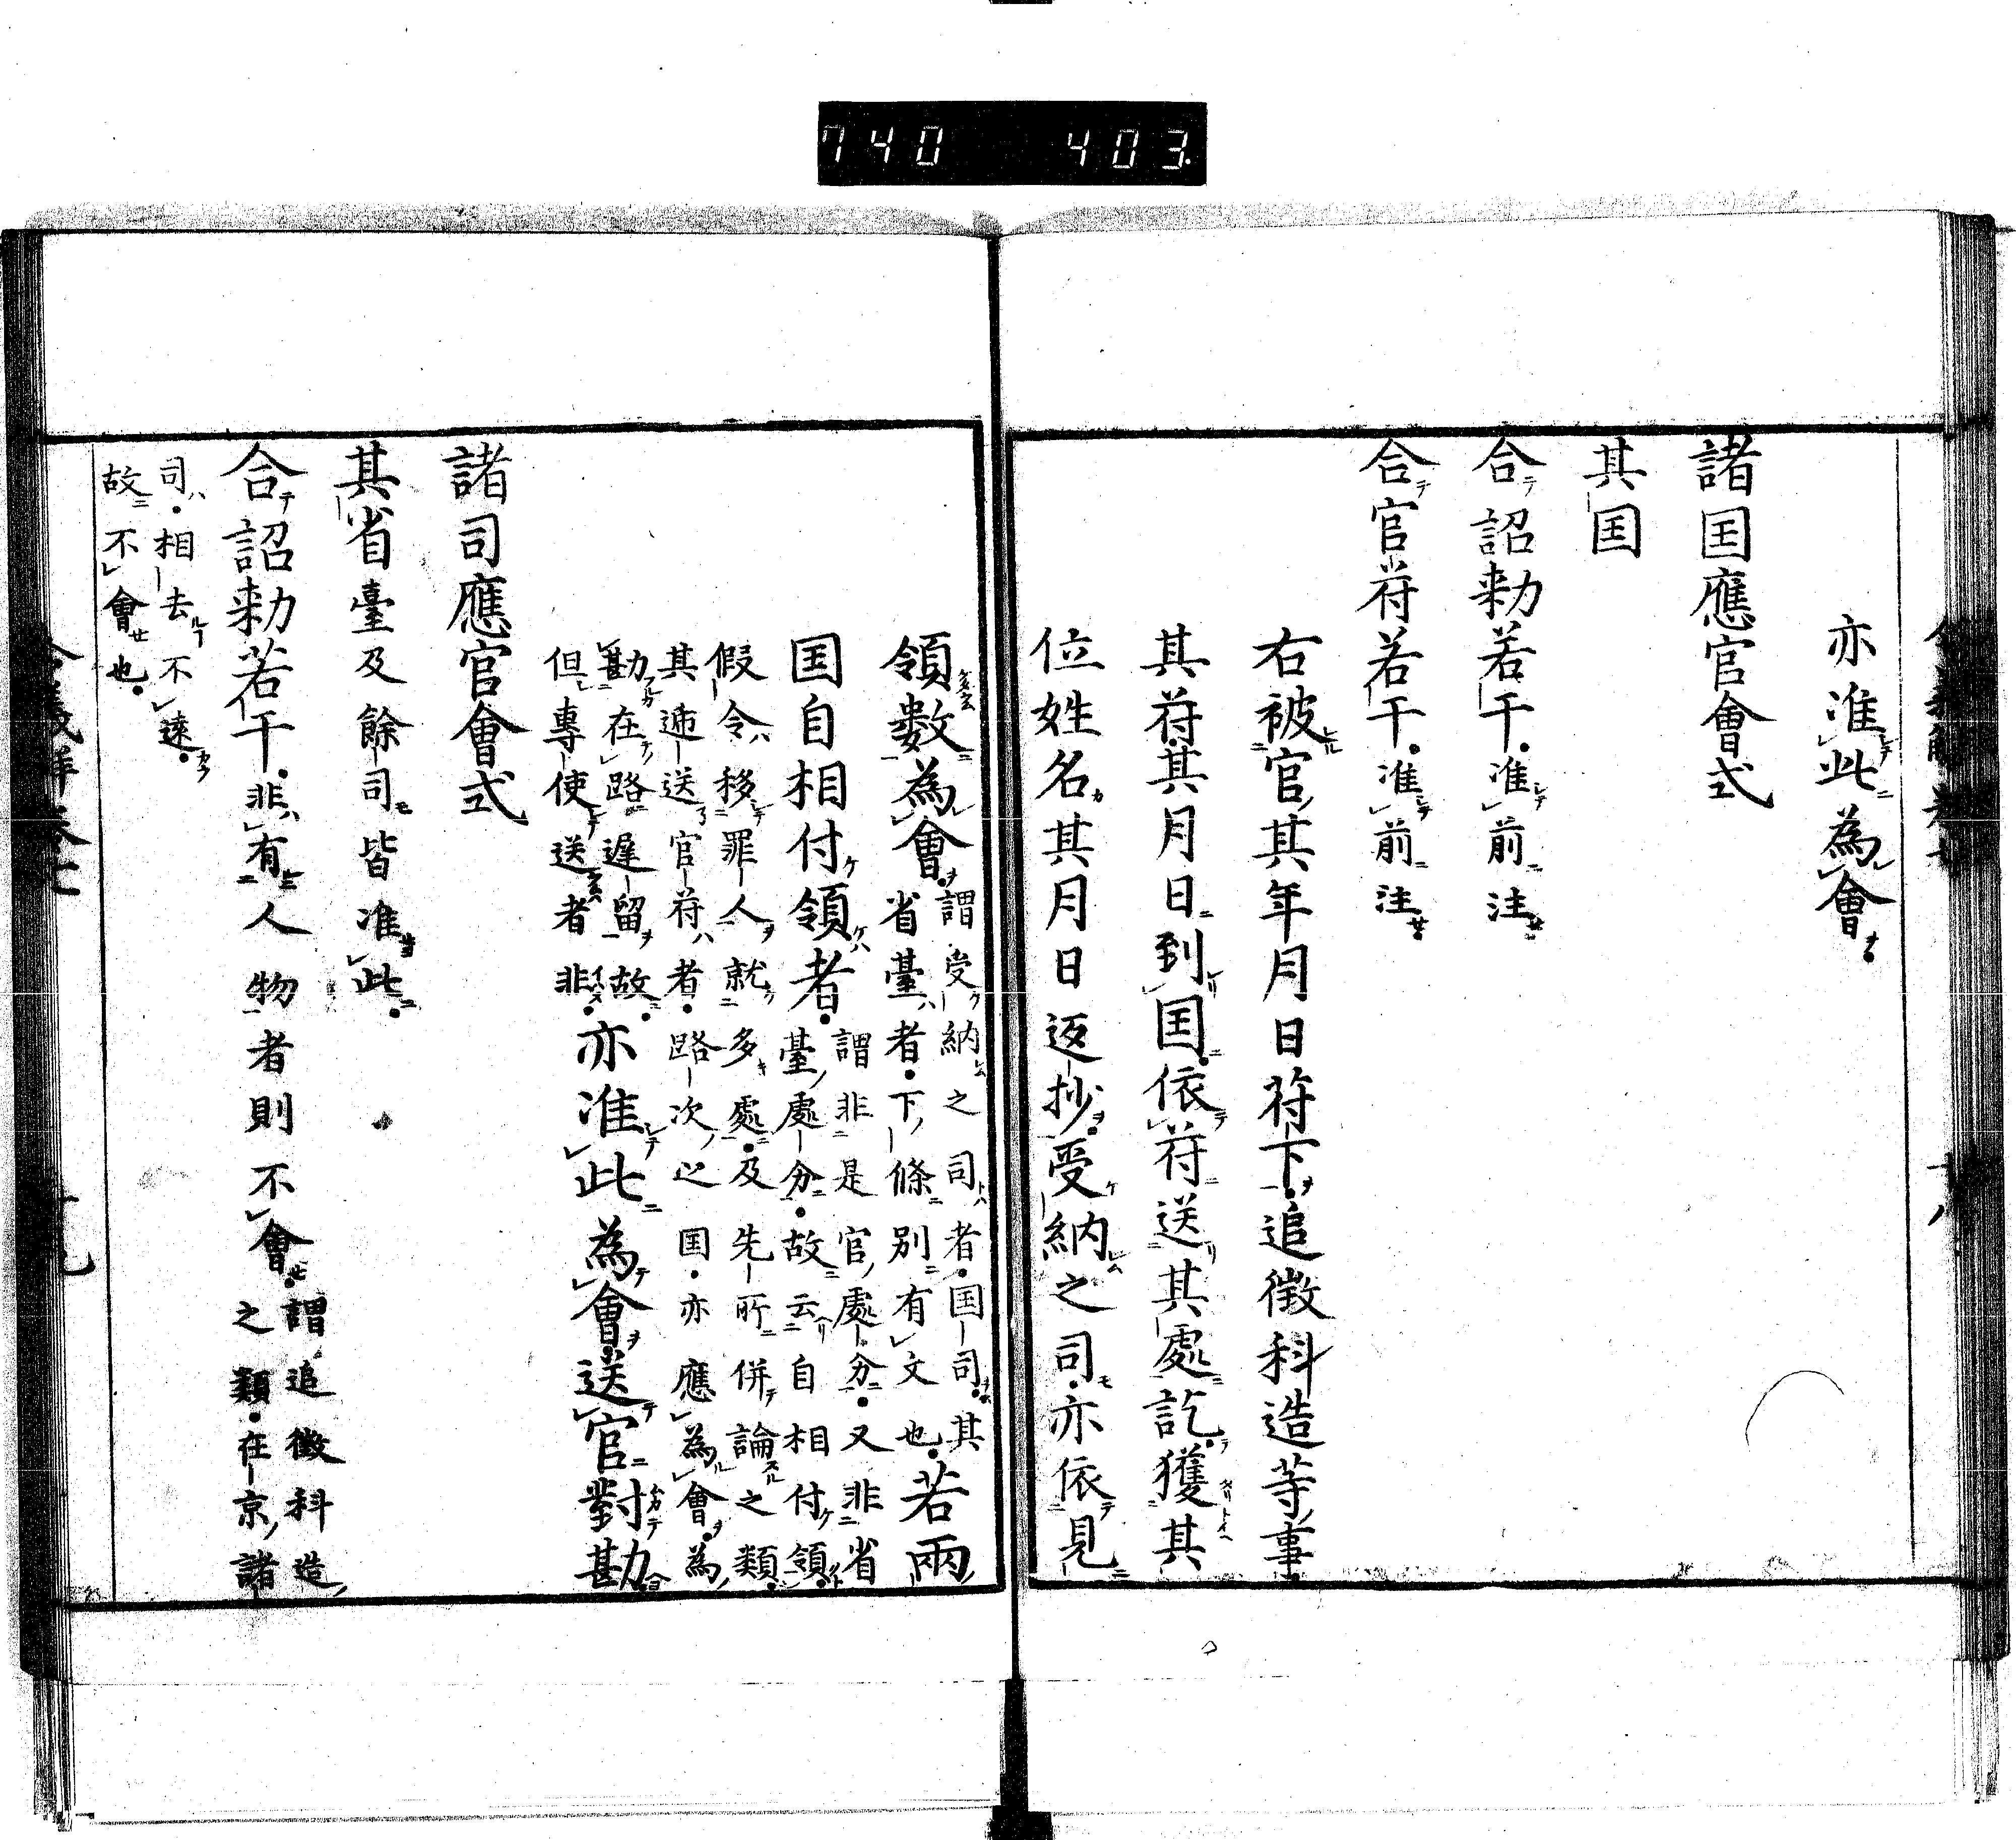 740 403
亦准此為會
諸国應官會式
其国
合詔勅若干准前注
合官符若干准前注
右被官其年月日符下追徴科造等事
其符其月日到国依符送其處訖獲其
位姓名其月日返抄受納之司亦依見
領数為會
謂受納之司者国司其
省臺者下條別有文也
若兩
国自相付領者
謂非是官處分又非省
臺處分故云自相付領
假令移罪人就多處及先所併論之類
其逓送官符者路次之国亦應為會為
勘在路遅留故
但專使送者非
亦准此為會送官對勘
諸司應官會式
其省臺及餘司皆准此
合詔勅若干非有人物者則不會
謂追徴科造
之類在京諸
司相去不遠
故不會也